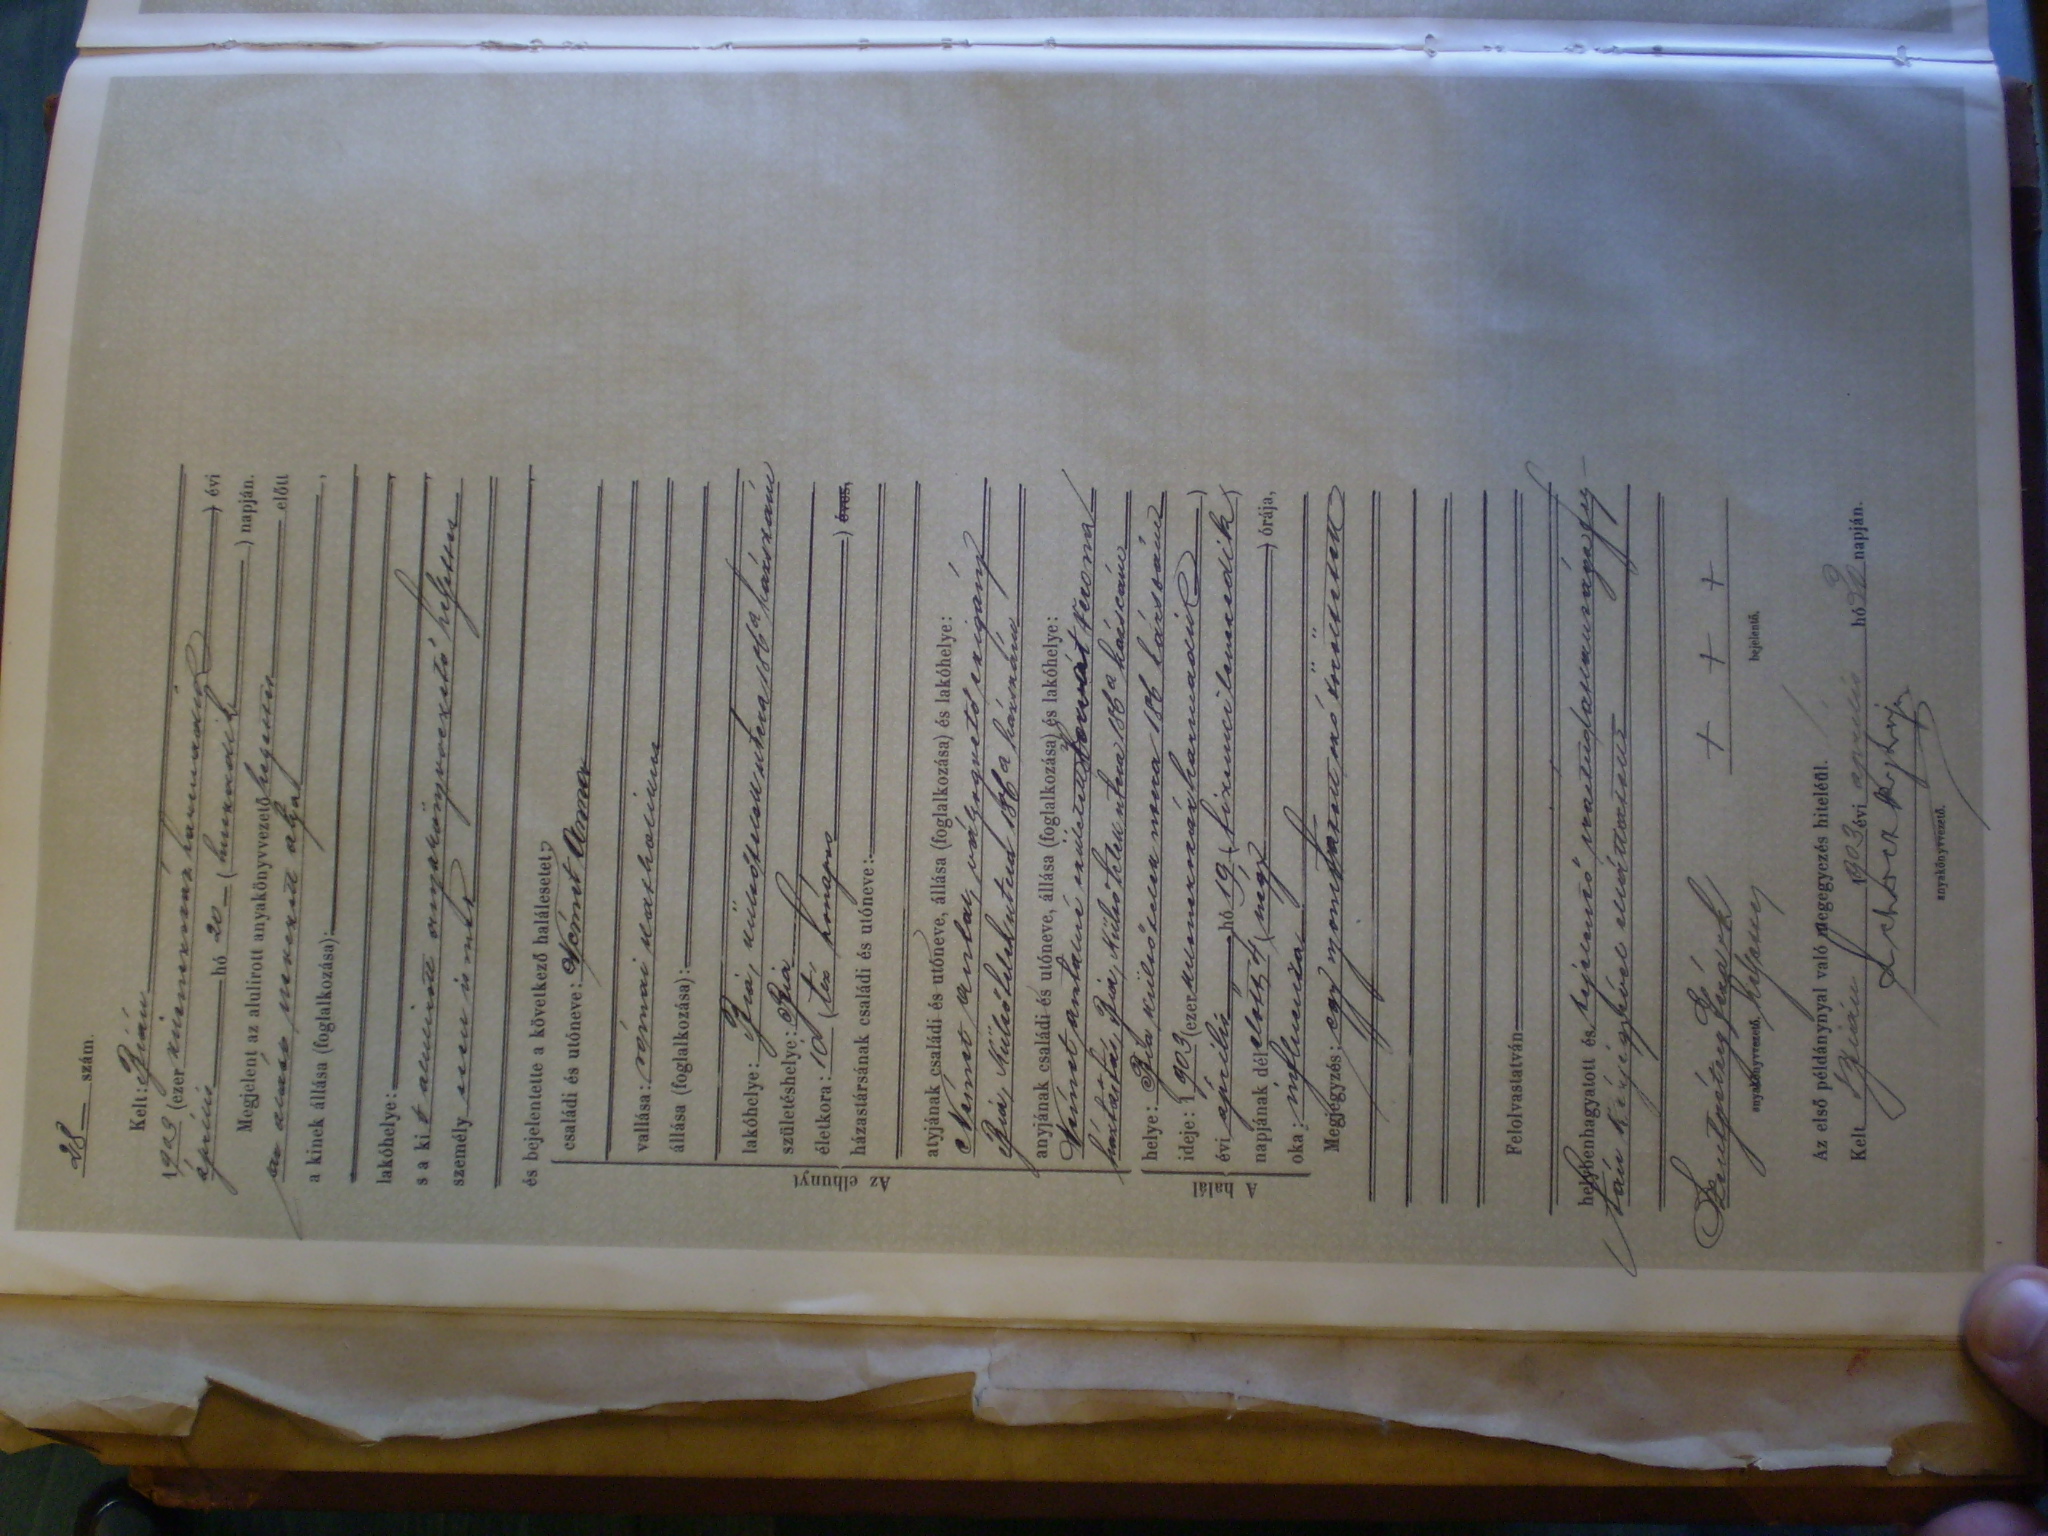 28 szám.
Kelt: Bián
1903 (ezerkilenczszázharmadik) évi
április hó 20 (huszadik) napján.
Megjelent az alulirott anyakönyvvezető helyettes előtt
a kinek állása (foglalkozása):
lakóhelye:
s a kit alulirott anyakönyvvezető helyettes
személyesen ismer
és bejelentette a következő halálesetet:
Az elhunyt
családi és utóneve: Német Anna
vallása: római katholikus
állása (foglalkozása):
lakóhelye: Bia, külsőtelek utcza 186a házszám
születéshelye: Bia
életkora: 10 (tíz hónapos) éves,
házastársának családi és utóneve:
atyjának családi és utóneve, állása (foglalkozása) és lakóhelye:
Német vályogvető czigány
Bia, Külsőtelek utcza 186a házszám
anyjának családi és utóneve, állása (foglalkozása) és lakóhelye:
Német Antalné született Horvát Verona
háztartás, Bia, Külsőtelek utcza 186a házszám
A halál
helye: Bia külsőtelek utcza 186 házszám
ideje: 1903 (ezerkilenczszázharmadik)
évi április hó 19 (tizenkilenczedik)
napjának délelőtt 4 (négy) órája,
oka: influenza
Megjegyzés: egy
Felolvastatván
helybenhagyatott és bejelentő irástudatlansága foly-
tán kézjegyével elláttatott
Szentpétery
anyakönyvvezető helyettes
+ + +
bejelentő.
Az első példánynyal való megegyezés hiteléül.
Kelt Bián 1903 évi április hó napján.
anyakönyvvezető.